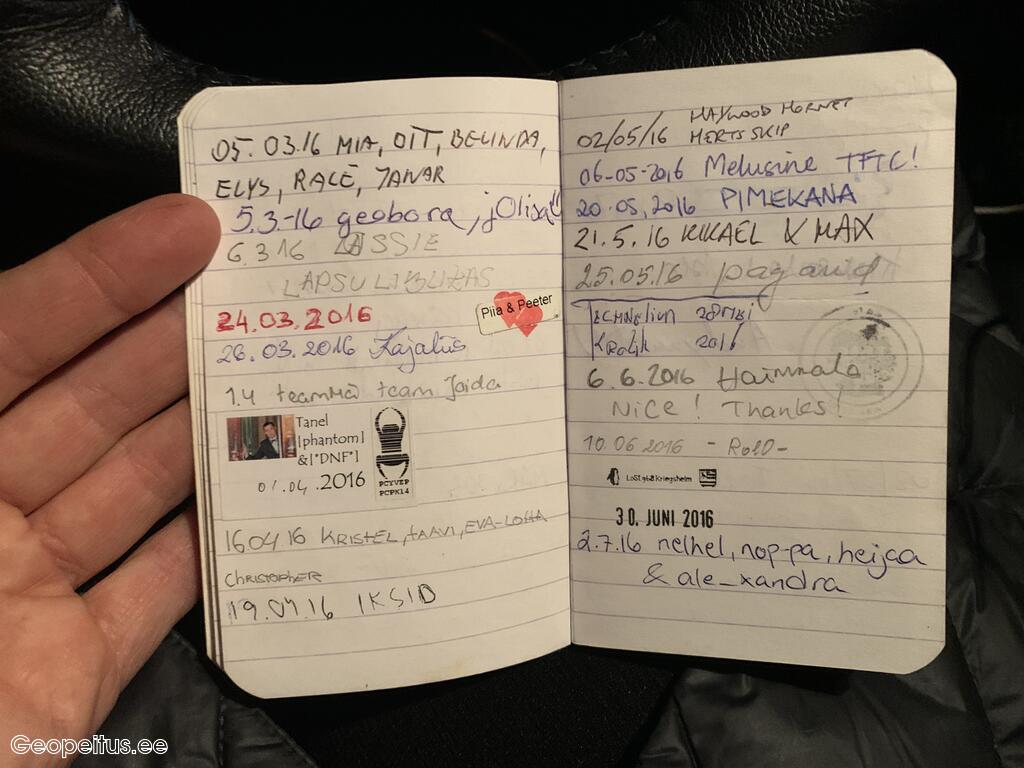 05.03.16 MIA, OTT, BELINDA,
ELYS, RACE, JANAR
5.3-16 geobora, jOlisa
6.3 16 LASSIE
24.03.2016
Piia & Peeter
26.03.2016 Kajalus
1.4 team team Jaida
Tanel
[phantom]
& [*DNF*]
01.04.2016
PCYVEP
PCPK14
16 04 16 KRISTEL, TAAVI, EVA-LOTTA
CHRISTOPHER
19.04.16 IKSID
02/05/16 HAYWOOD HORNET
HERTS SKIP
06-05-2016 Melusine TFTC!
20.05.2016 PIMEKANA
21.5.16 KIKAEL & MAX
25.05.16
2016
6.6.2016 Haimmala
NiCe! Thanks!
10.06 2016 - RolD -
LoSt 968 Kriegsheim
30. JUNI 2016
2.7.16 nelhel, nop-pa, heijaa
& ale_xandra
Geopeitus.ee